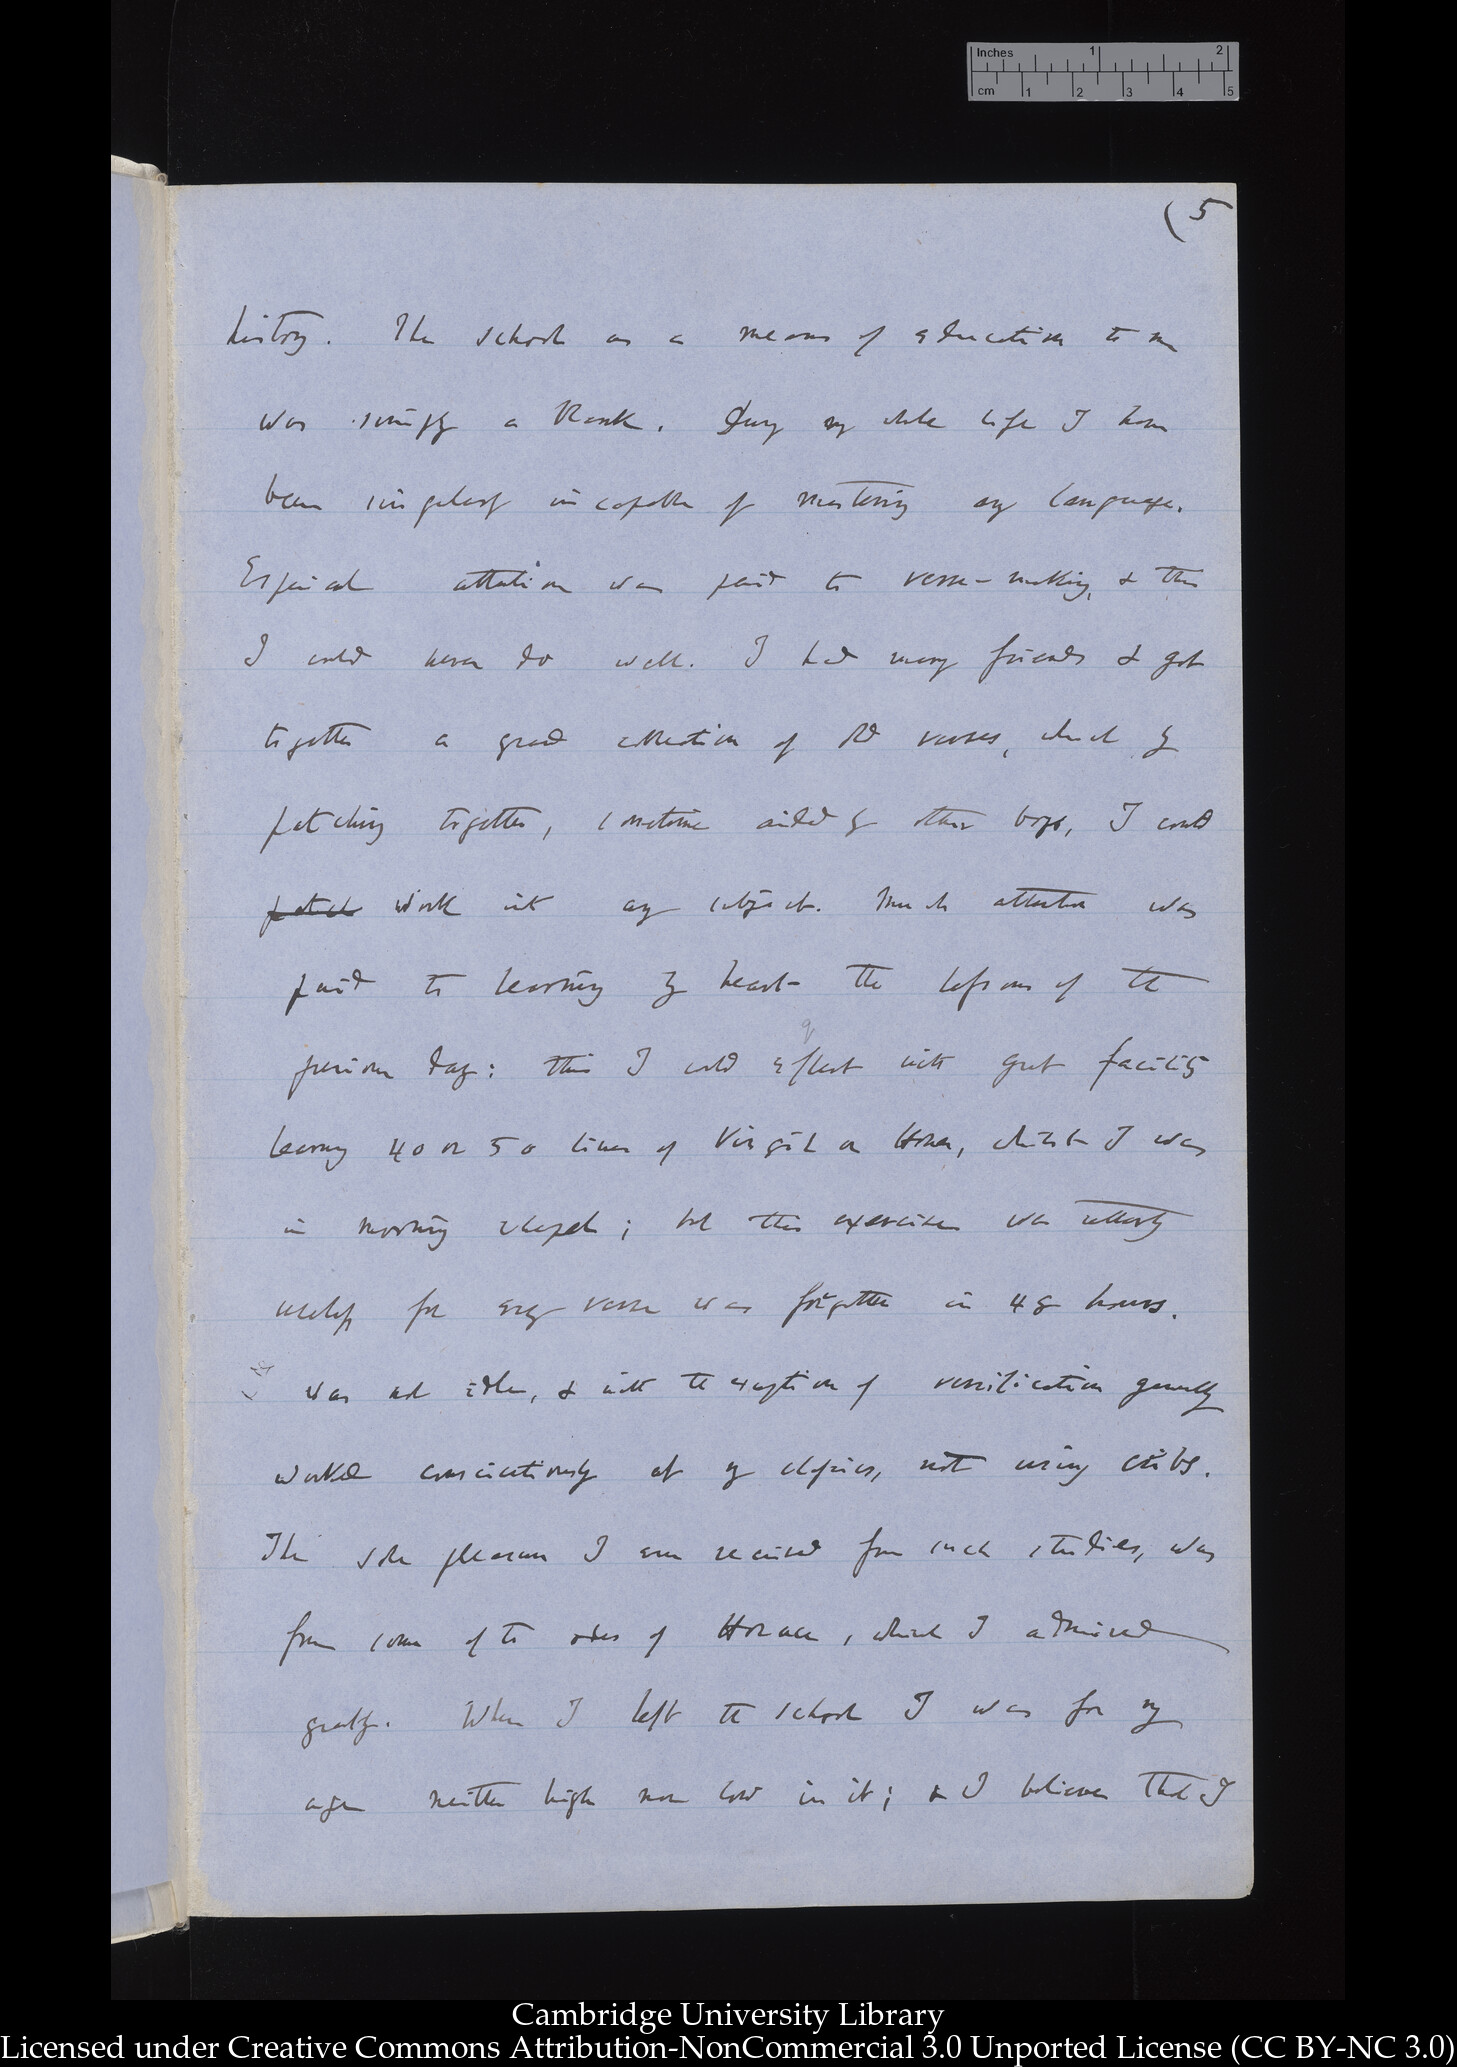 Inches 1 2
cm 1 2 3 4 5
(5
history. The school as a means of education to me
was simply a blank. During my whole life I have
been singularly incapable of mastering any language.
Especial attention was paid to verse-making, & this
I could never do well. I had many friends & got
together a grand collection of old verses, which by
patching together, sometimes aided by other boys, I could
patch work into any subject. Much attention was
paid to learning by heart the lessons of the
previous day: this I could effect with great facility
learning 40 or 50 lines of Virgil or Homer, whilst I was
in morning chapel; but this exercise was utterly
useless for every verse was forgotten in 48 hours. 
was not idle, & with the exception of versification generally
worked conscientiously at my classics, not using cribs.
The sole pleasure I ever received from such studies, was
from some of the odes of Horace, which I admired
greatly. When I left the school I was for my
age neither high nor low in it; & I believe that I
Cambridge University Library
Licensed under Creative Commons Attribution-NonCommercial 3.0 Unported License (CC BY-NC 3.0)